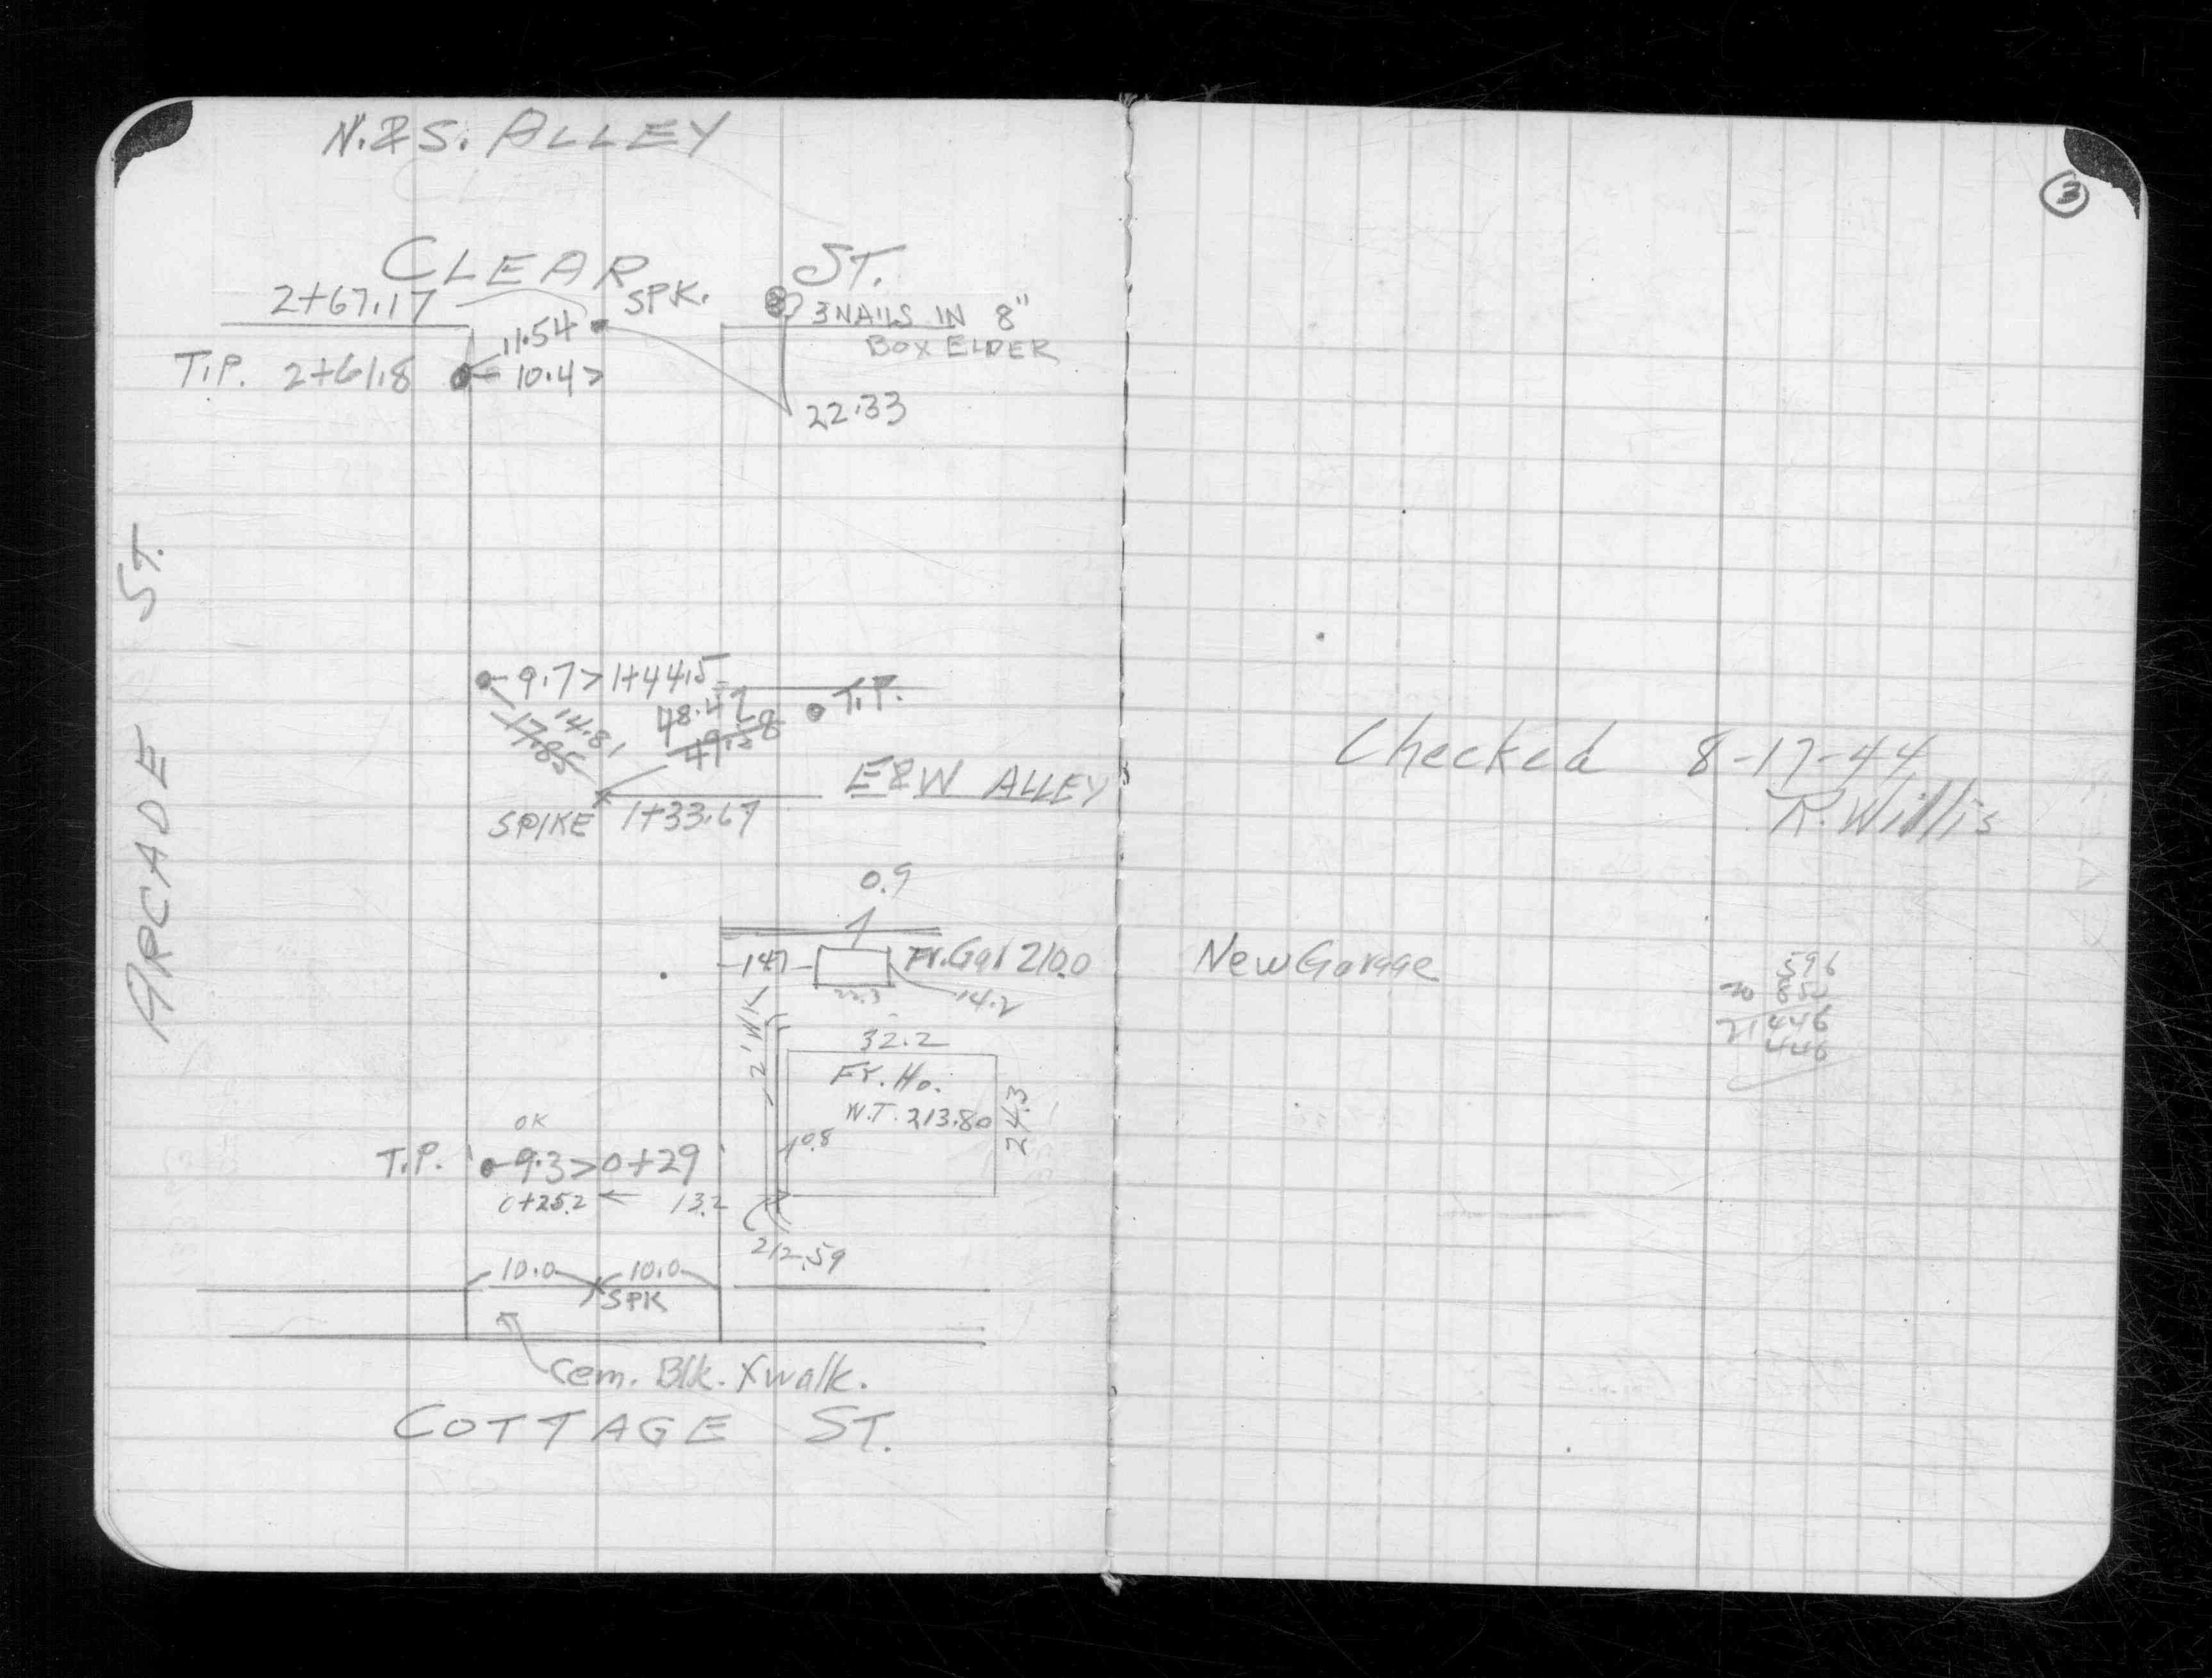 N. & S. ALLEY
CLEAR ST.
2+67.17
SPK.
3 NAILS IN 8"
BOX ELDER
11.54
T.P. 2+61.8
10.4
22.33
ARCADE ST.
9.7 1+44.5
T.P.
14.81
17.85
48.42
49.28
E&W ALLEY
SPIKE 1+33.67
0.9
14.7
Fr. Gar 210.0
22.3
14.2
2' WK
32.2
Fr. Ho.
W.T. 213.80
24.3
0.8
OK
T.P. 9.3 0+29
0+25.2 13.2
212.59
10.0 10.0
SPK
Cem. Blk. Xwalk.
COTTAGE ST.
3
Checked 8-17-44
R. Willis
New Garage
596
850
446
446